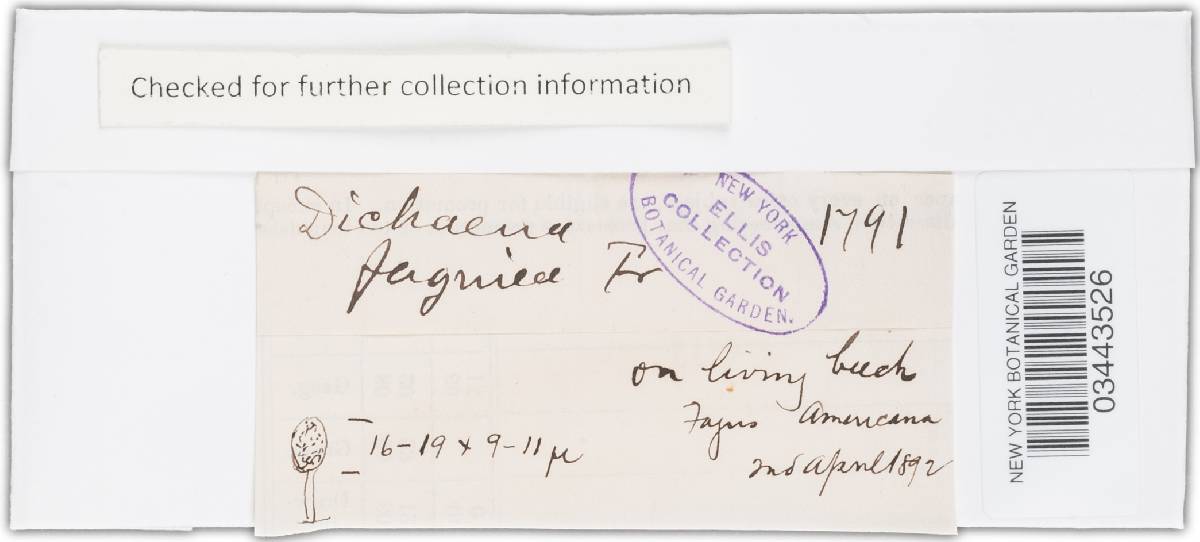 Checked for further collection information
Dichaena
faginea Fr
1791
NEW YORK
ELLIS
COLLECTION
BOTANICAL GARDEN.
on living beech
Fagus Americana
April 1892
16-19 x 9-11 μ
NEW YORK BOTANICAL GARDEN
03443526